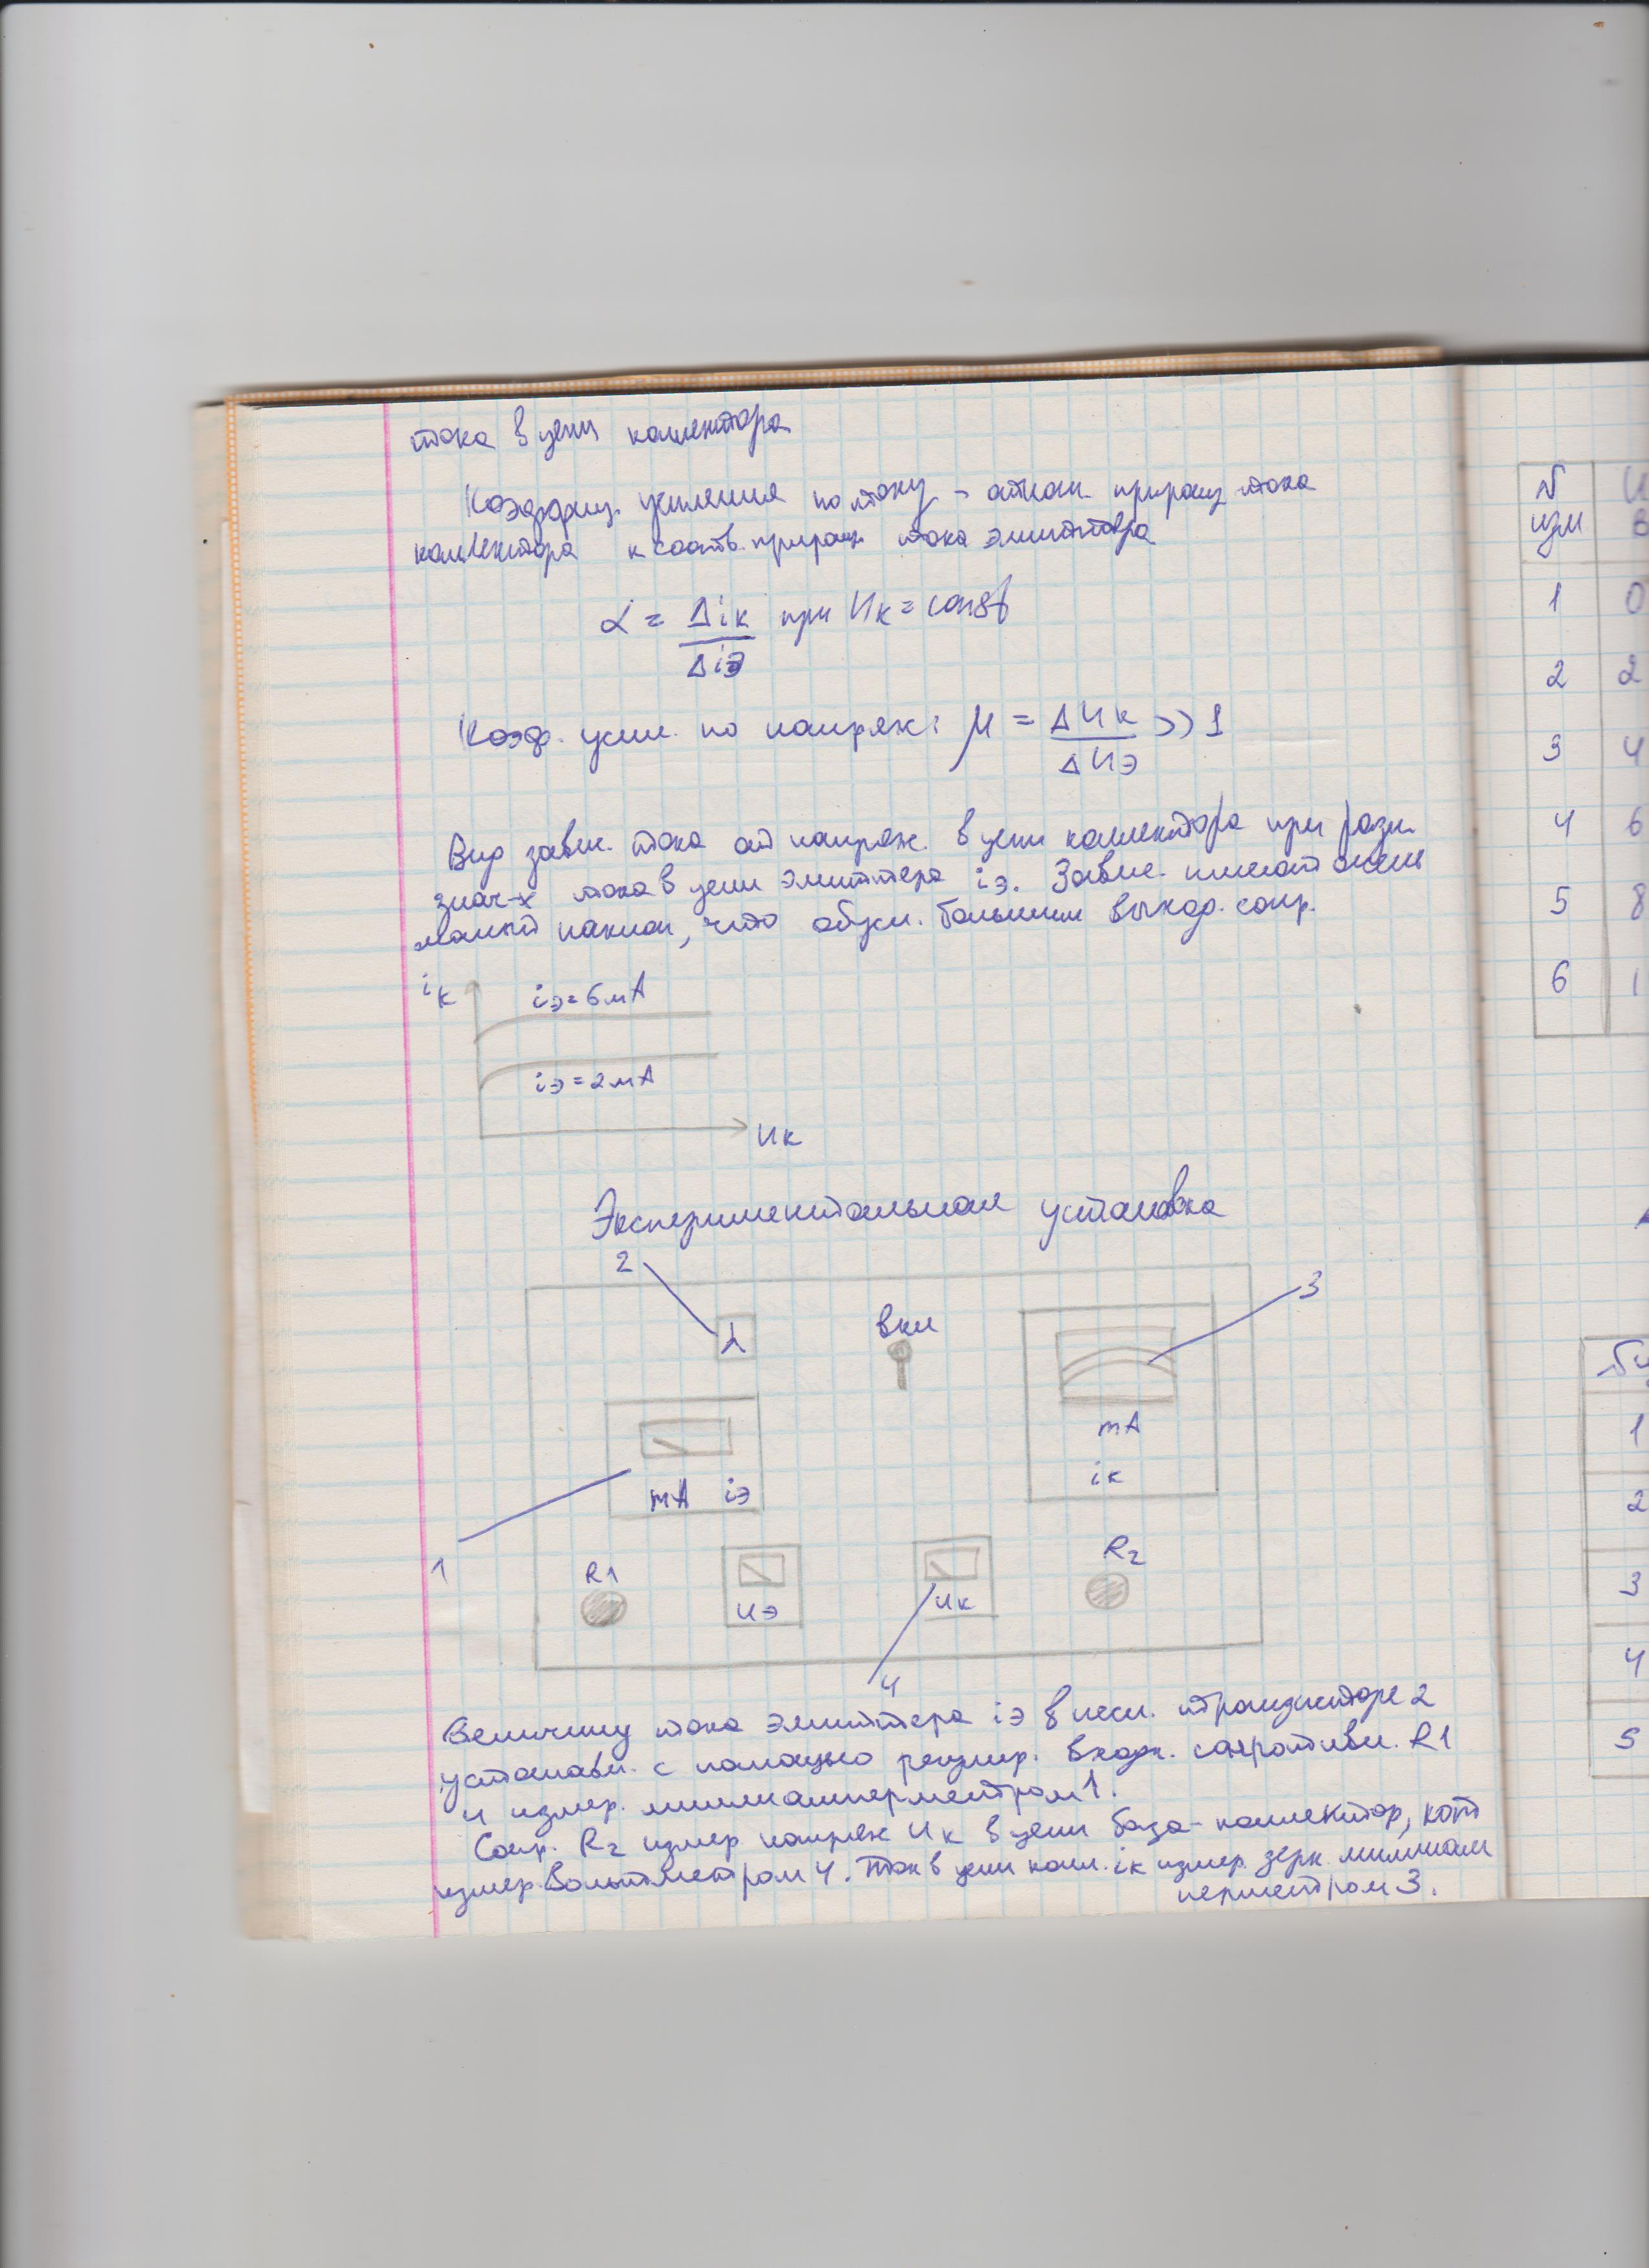 тока в цепи коллектора
Коэффиц. усиления по току - отнош. приращ. тока
коллектора к соотв. приращ. тока эмиттера
α = Δiк / Δiэ при Uк = const
Коэф. усил. по напряж: μ = ΔUк / ΔUэ >> 1
Вид завис. тока от напряж. в цепи коллектора при разн.
знач-х тока в цепи эмиттера iэ. Завис. имеют очень
малый наклон, что обусл. большим выход. сопр.
iк
iэ=6мА
iэ=2мА
Uк
Экспериментальная установка
2
3
вкл
mA
iк
mA iэ
1
R1
Uэ
Uк
R2
4
Величину тока эмиттера iэ в исси. транзисторе 2
устанавл. с помощью регулир. входн. сопротивл. R1
и измер. миллиамперметром 1.
Сопр. R2 измер. напряж Uк в цепи база-коллектор, кот
измер. Вольтметром 4. Ток в цепи колл. iк измер. зерк. миллиам
перметром 3.
N
изм
1 0
2 2
3 4
4 6
5 8
6 1
1
2
3
4
5